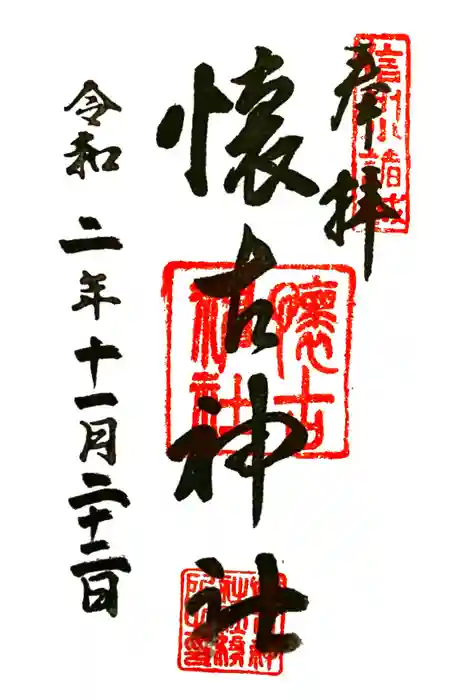 奉拝
信州小諸城
懐古神社
懐古神社
令和二年十一月二十二日